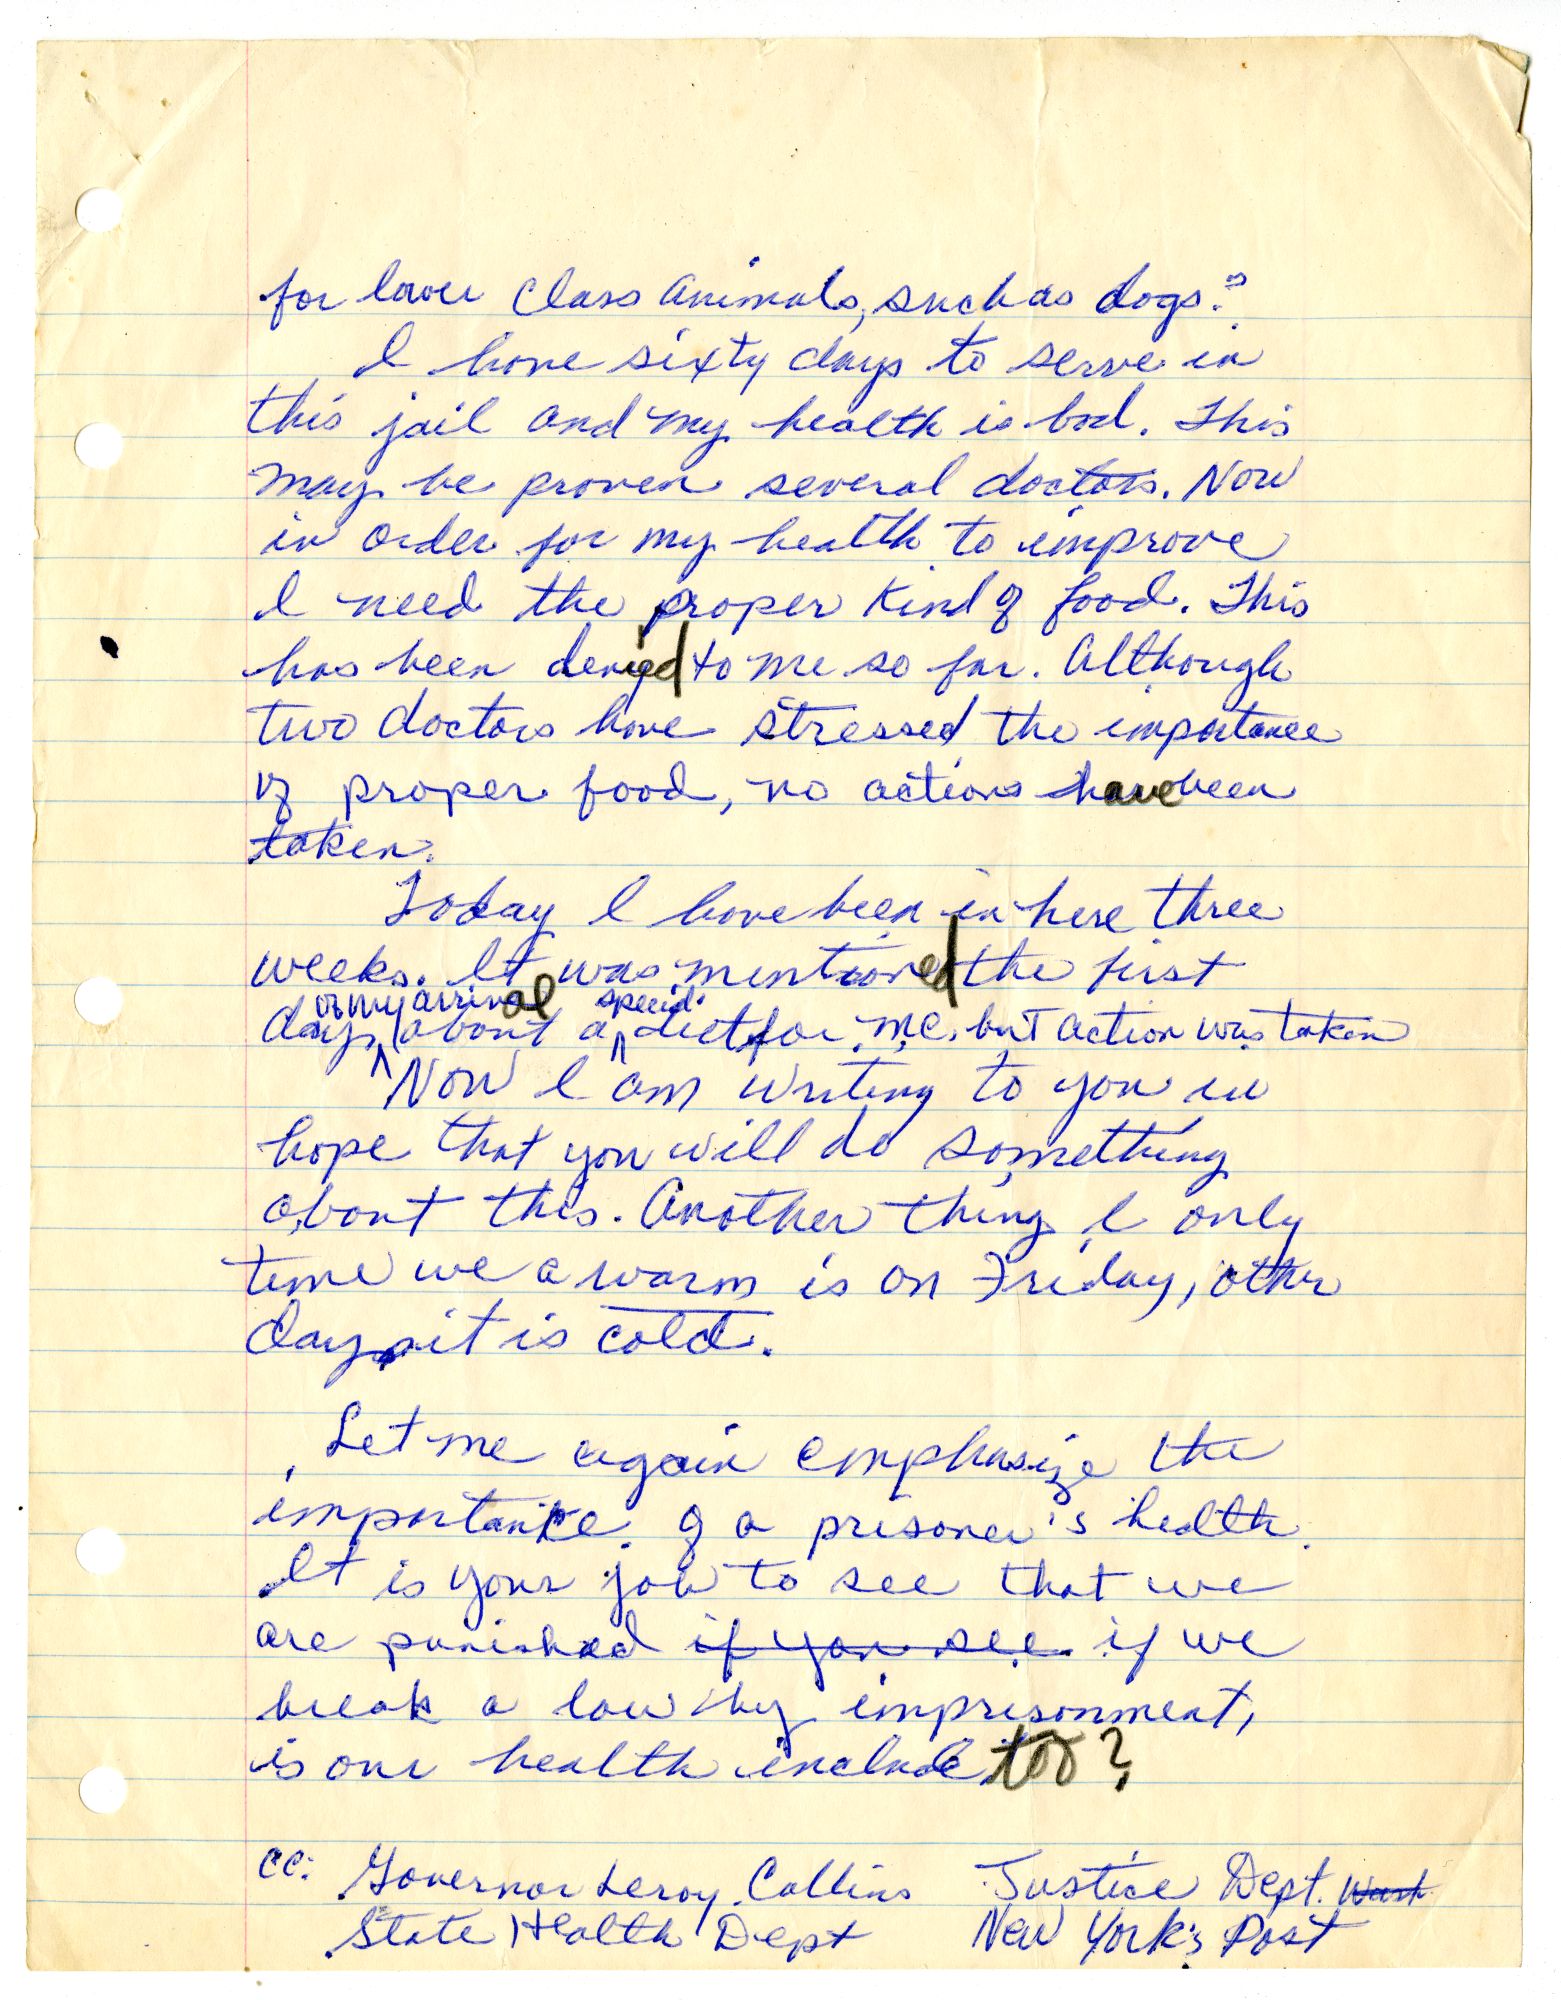 for lower class animals, such as dogs?
I have sixty days to serve in
this jail and my health is bad. This
may be proven several doctors. Now
in order for my health to improve
I need the proper kind of food. This
has been denied to me so far. Although
two doctors have stressed the importance
of proper food, no actions have been
taken.
Today I have been in here three
weeks. It was mentioned the first
days of my arrival about a special diet for me, but action was taken
Now I am writing to you in
hope that you will do something
about this. Another thing, I only
time we a warm is on Friday, other
days it is cold.
Let me again emphasize the
importance of a prisoner's health.
It is your job to see that we
are punished if you see if we
break a law by imprisonment,
is our health include too?
cc: Governor Leroy Collins Justice Dept. Wash
State Health Dept New York's Post